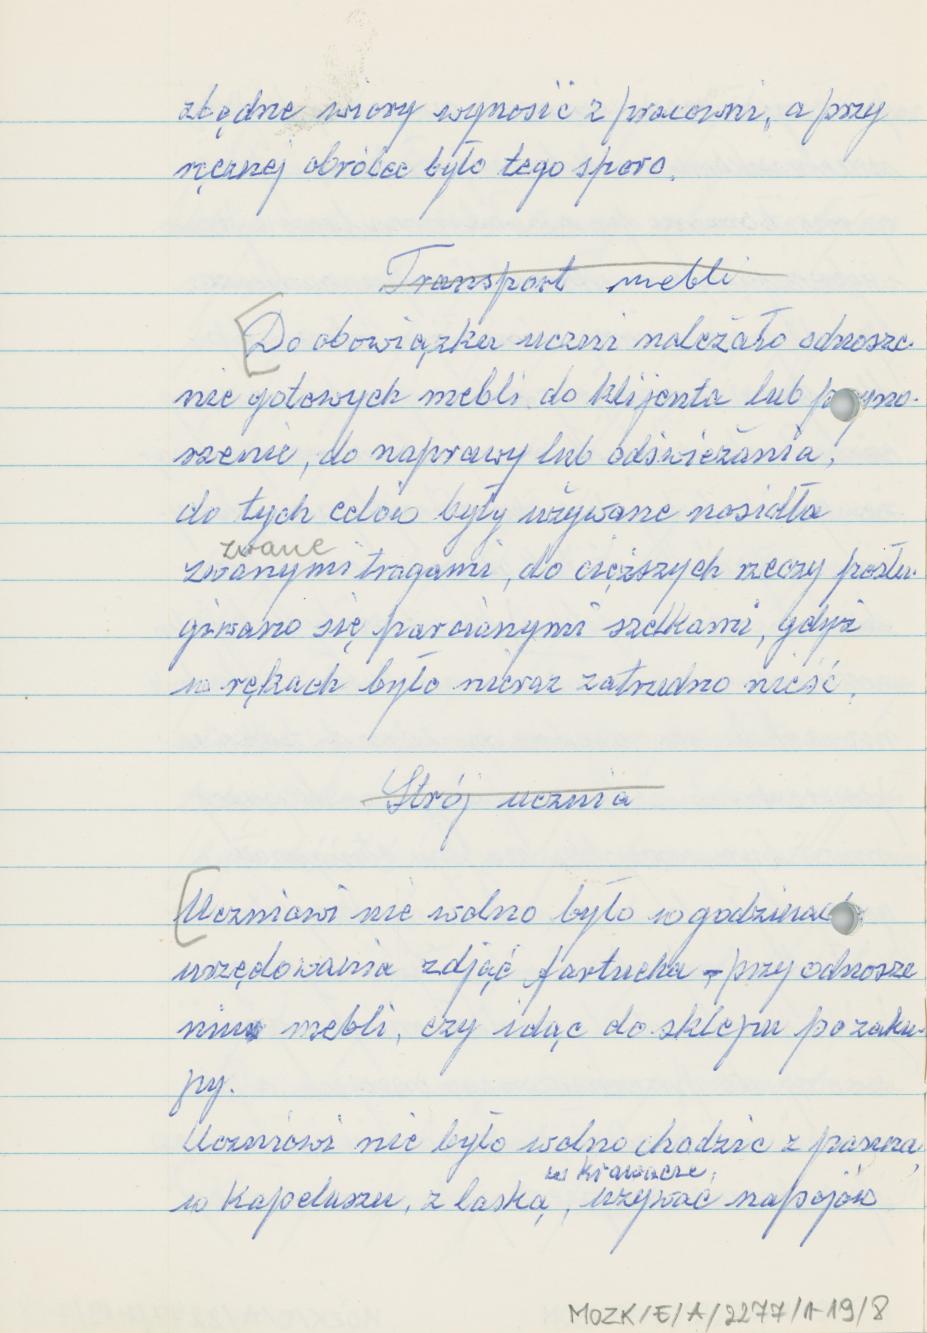 zbędne wiory wynosić z pracowni, a przy
ręcznej obróbce było tego sporo.
Transport mebli
Do obowiązku uczni należało odnosze-
nie gotowych mebli do klijenta lub przyno-
szenie, do naprawy lub odświeżania,
do tych celów były używane nosidła
zwane
zwanymi tragami, do cięższych rzeczy posłu-
giwano się parcianymi szelkami, gdyż
w rękach było nieraz zatrudno nieść.
Strój ucznia
Uczniowi nie wolno było w godzinach
urzędowania zdjąć fartucha - przy odnosze
niu mebli, czy idąc do sklepu po zaku-
py.
Uczniowi nie było wolno chodzić z
w krawacie,
w Kapeluszu, z laską, używać napojów
MOZK/E/A/2277/1-19/8